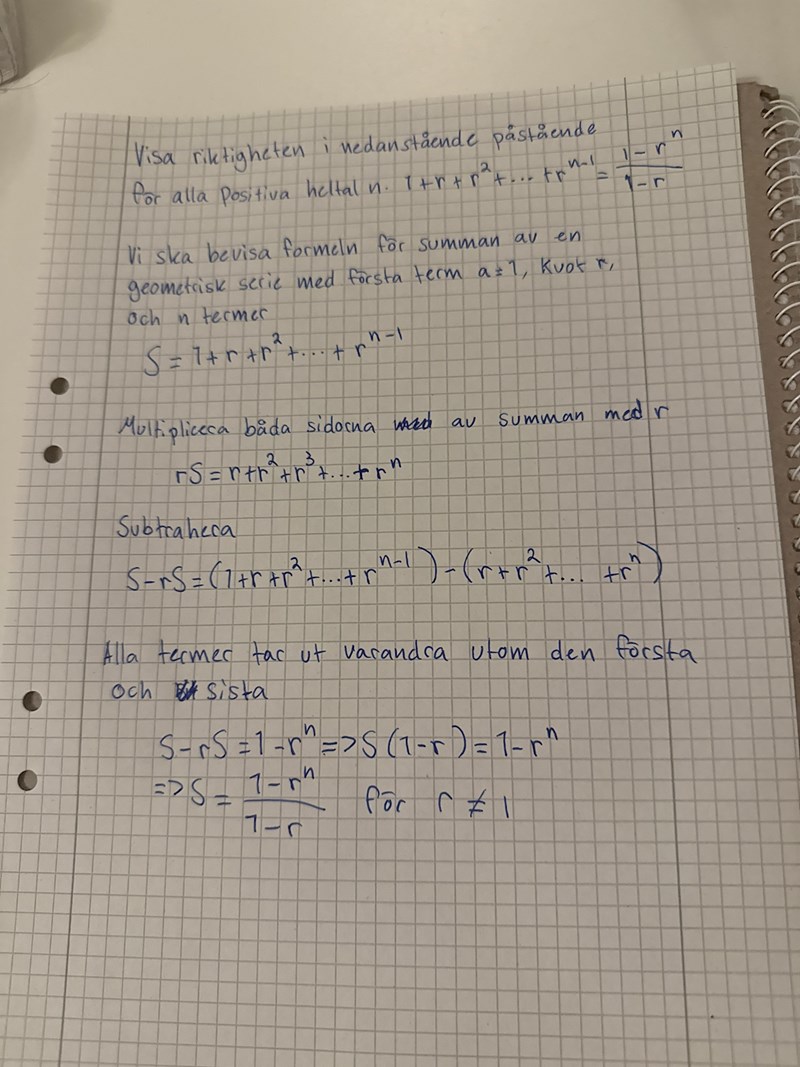 Visa riktigheten i nedanstående påstående
för alla positiva heltal n. 1+r+r²+...+r^{n-1} = \frac{1-r^n}{1-r}
Vi ska bevisa formeln för summan av en
geometrisk serie med första term a=1, kvot r,
och n termer
S = 1+r+r²+...+r^{n-1}
Multiplicera båda sidorna av summan med r
rS = r+r²+r³+...+r^n
Subtrahera
S-rS = (1+r+r²+...+r^{n-1})-(r+r²+... +r^n)
Alla termer tar ut varandra utom den första
och sista
S-rS = 1-r^n => S(1-r) = 1-r^n
=> S = \frac{1-r^n}{1-r} för r ≠ 1